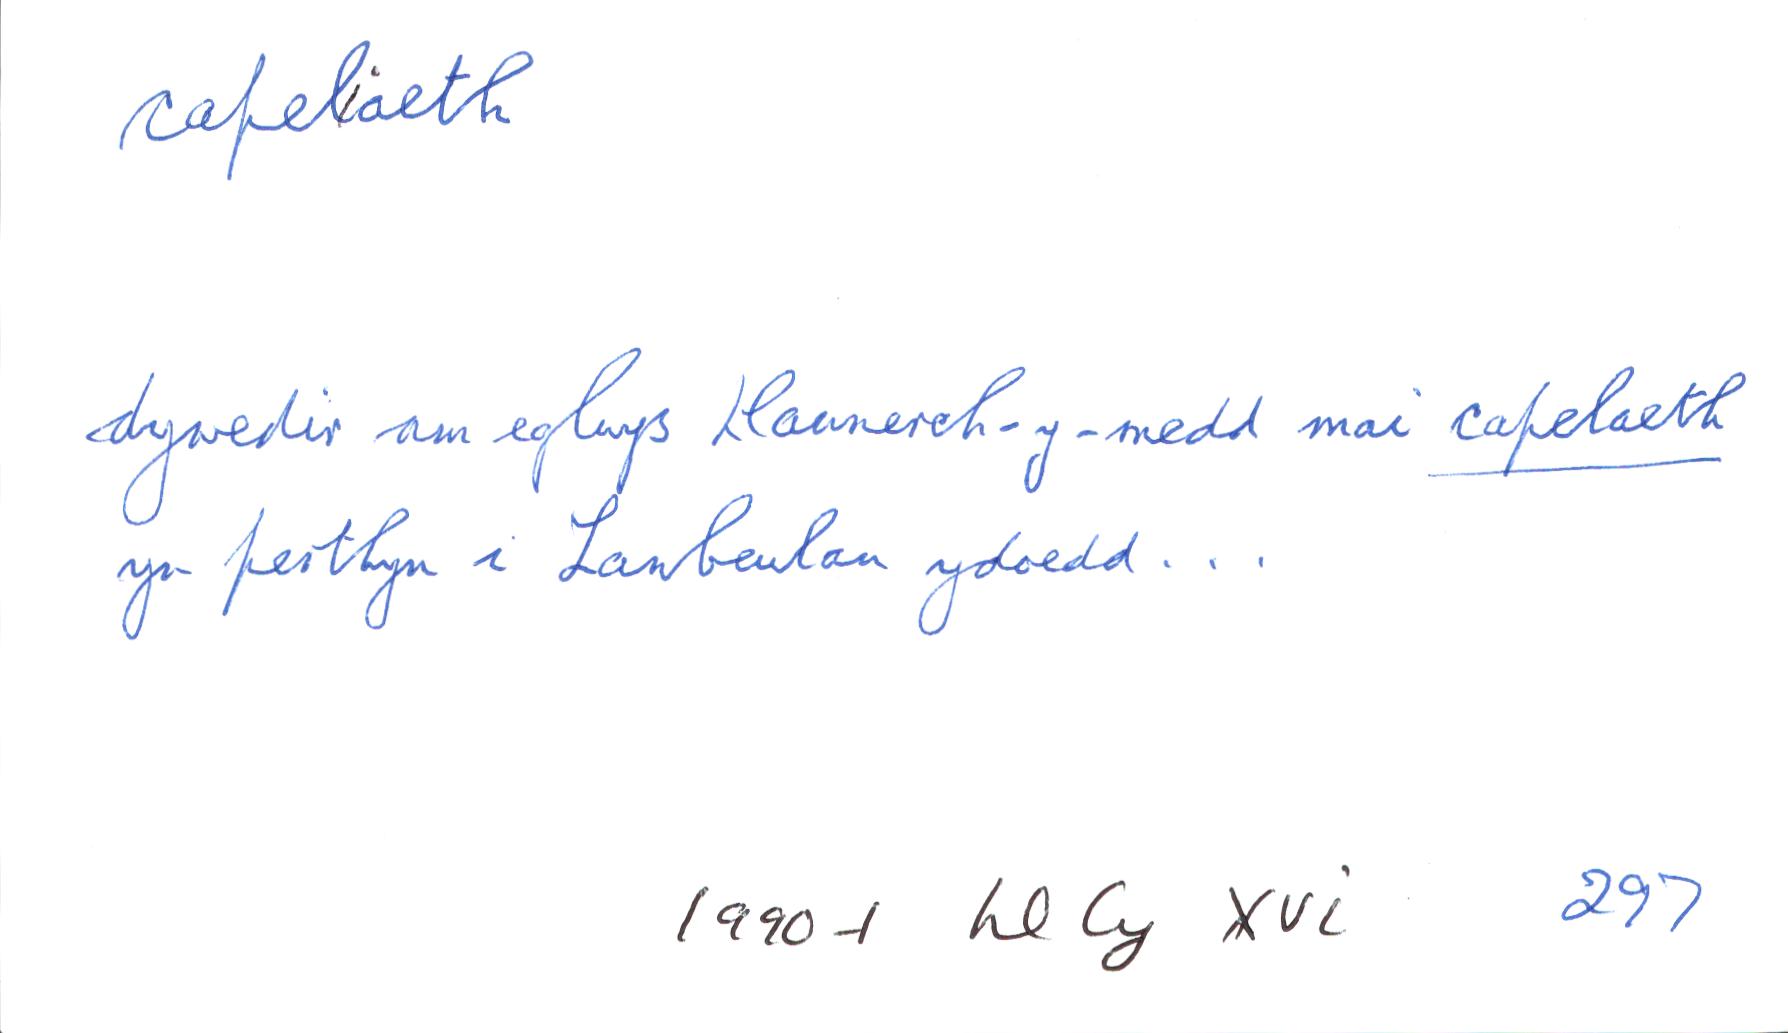 capeliaeth
dywedir am eglwys Llannerch-y-medd mai capelaeth
yn perthyn i Lanbeulan ydoedd . . .
1990-1 Ll Cy XVI 297